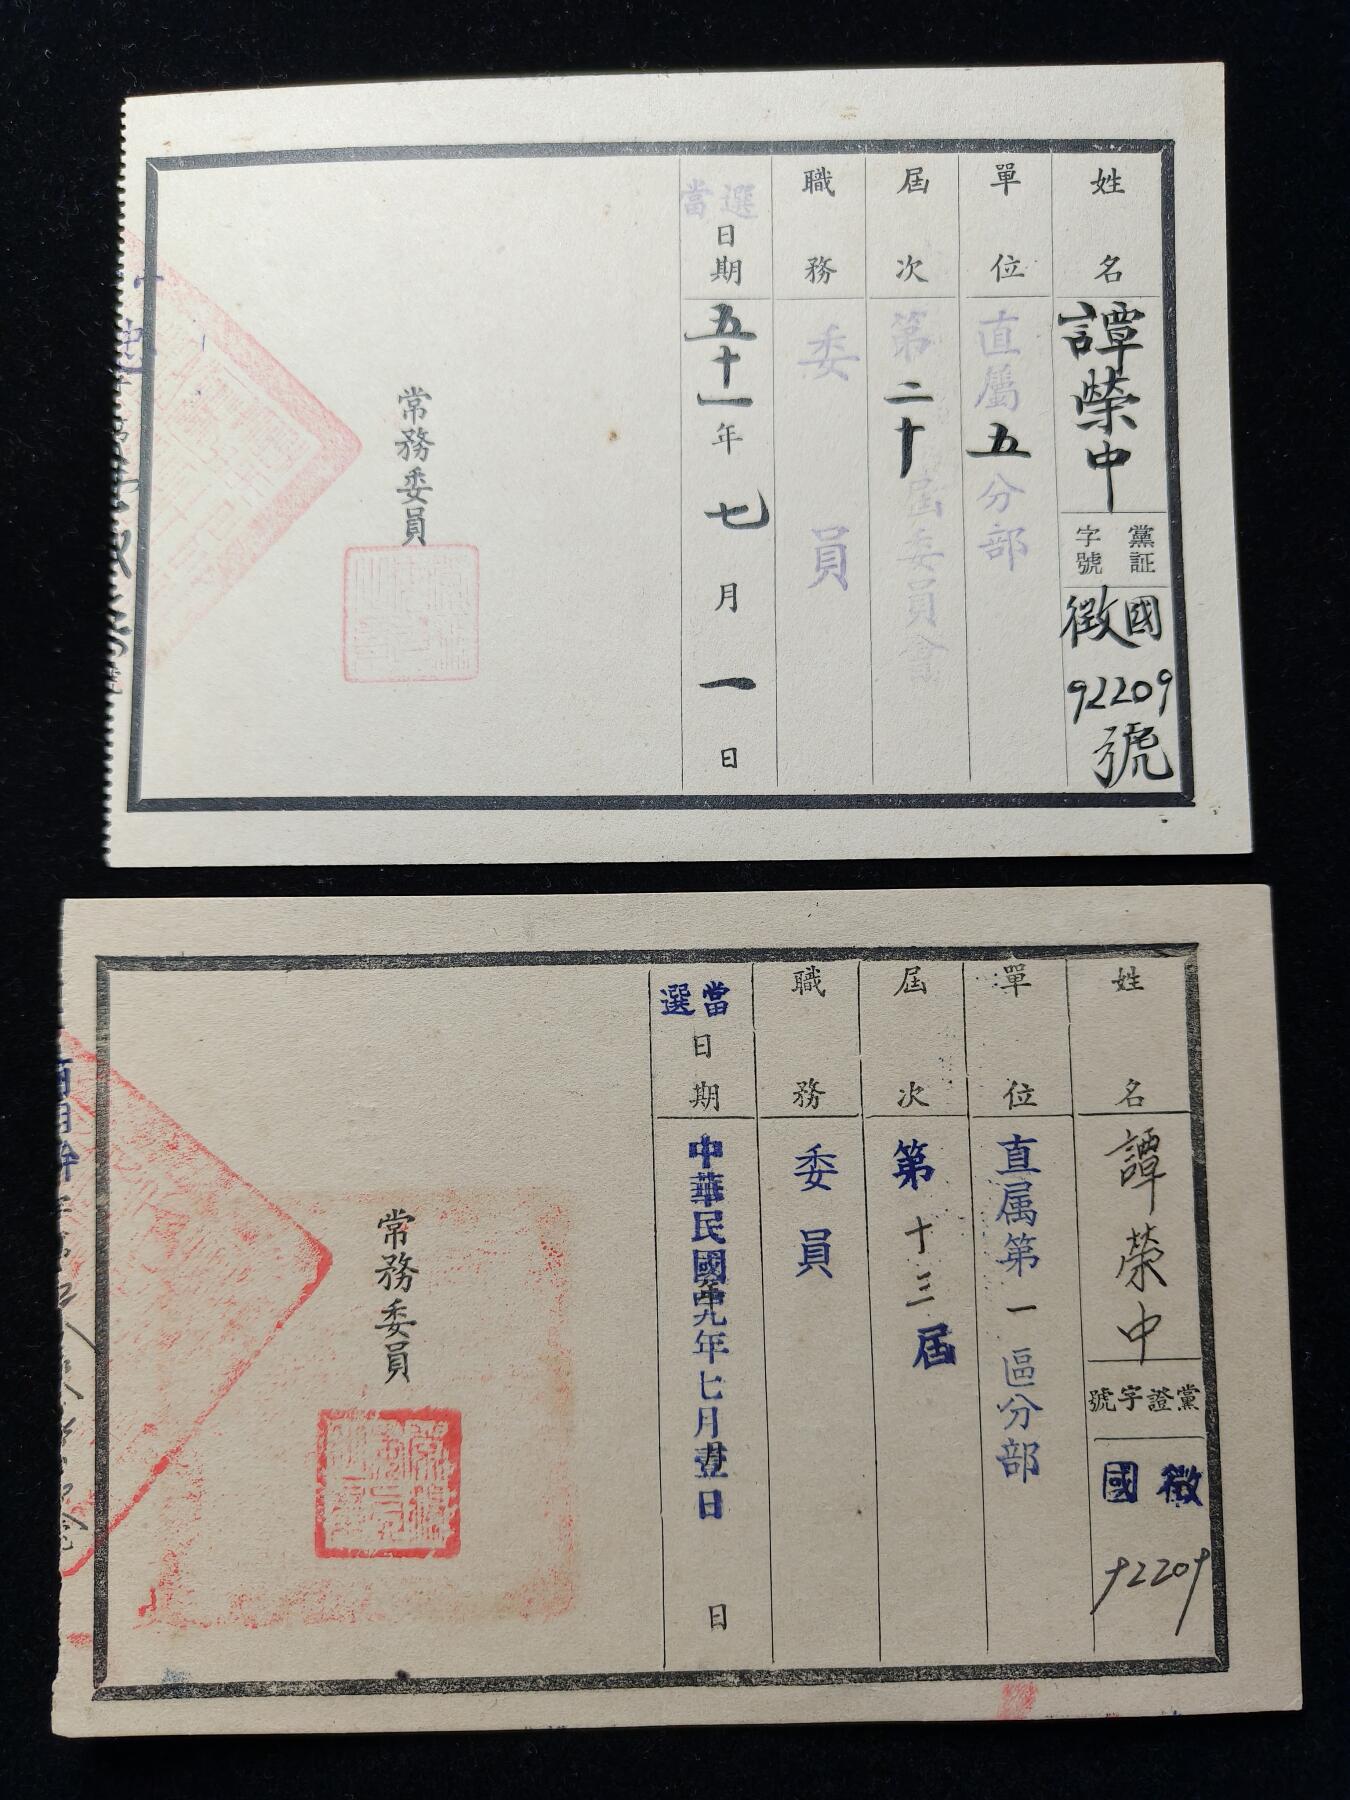 姓名
譚榮中
黨証字號
國徵
92209
號
單位
直屬五分部
屆次
第二十屆委員會
職務
委員
當選日期
五十一年七月一日
常務委員
姓名
譚榮中
黨證字號
徵國
92209
單位
直属第一區分部
屆次
第十三屆
職務
委員
當選日期
中華民國
九年七月壹日
日
常務委員